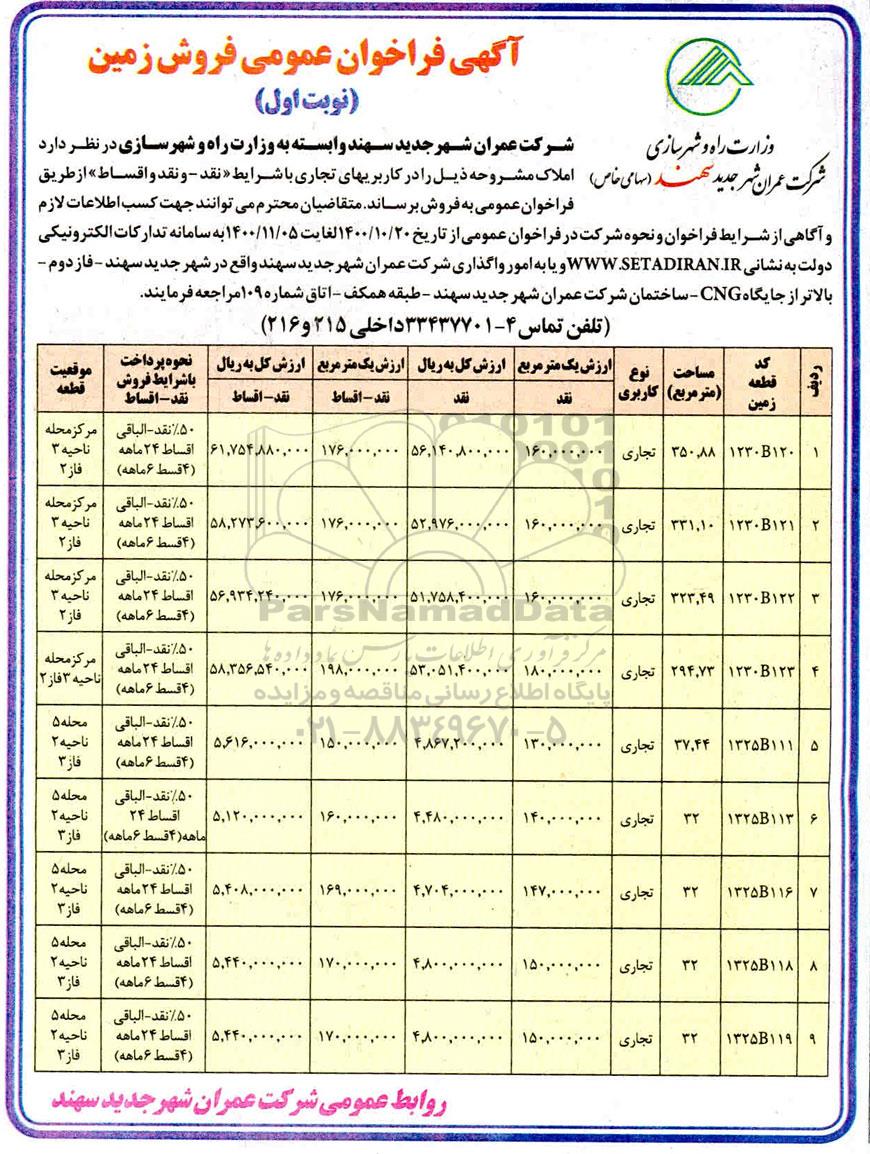 آگهی فراخوان عمومی فروش زمین
(نوبت اول)
وزارت راه و شهرسازی
شرکت عمران شهر جدید سهند (سهامی خاص)
شرکت عمران شهر جدید سهند وابسته به وزارت راه و شهرسازی در نظر دارد
املاک مشروحه ذیل را در کاربریهای تجاری با شرایط «نقد - و نقد و اقساط» از طریق
فراخوان عمومی به فروش برساند. متقاضیان محترم می توانند جهت کسب اطلاعات لازم
و آگاهی از شرایط فراخوان و نحوه شرکت در فراخوان عمومی از تاریخ ۱۴۰۰/۱۰/۲۰ لغایت ۱۴۰۰/۱۱/۰۵ به سامانه تدارکات الکترونیکی
دولت به نشانی WWW.SETADIRAN.IR و یا به امور واگذاری شرکت عمران شهر جدید سهند واقع در شهر جدید سهند - فاز دوم -
بالاتر از جایگاه CNG - ساختمان شرکت عمران شهر جدید سهند - طبقه همکف - اتاق شماره ۱۰۹ مراجعه فرمایند.
(تلفن تماس ۴-۳۳۴۳۷۷۰۱ داخلی ۲۱۵ و ۲۱۶)
ردیف | کد قطعه زمین | مساحت (متر مربع) | نوع کاربری | ارزش یک متر مربع نقد | ارزش کل به ریال نقد | ارزش یک متر مربع نقد - اقساط | ارزش کل به ریال نقد - اقساط | نحوه پرداخت با شرایط فروش نقد - اقساط | موقعیت قطعه
۱ | ۱۲۳۰B۱۲۰ | ۳۵۰,۸۸ | تجاری | ۱۶۰,۰۰۰,۰۰۰ | ۵۶,۱۴۰,۸۰۰,۰۰۰ | ۱۷۶,۰۰۰,۰۰۰ | ۶۱,۷۵۴,۸۸۰,۰۰۰ | ۵۰٪ نقد-الباقی اقساط ۲۴ ماهه (۴ قسط ۶ ماهه) | مرکز محله ناحیه ۳ فاز ۲
۲ | ۱۲۳۰B۱۲۱ | ۳۳۱,۱۰ | تجاری | ۱۶۰,۰۰۰,۰۰۰ | ۵۲,۹۷۶,۰۰۰,۰۰۰ | ۱۷۶,۰۰۰,۰۰۰ | ۵۸,۲۷۳,۶۰۰,۰۰۰ | ۵۰٪ نقد-الباقی اقساط ۲۴ ماهه (۴ قسط ۶ ماهه) | مرکز محله ناحیه ۳ فاز ۲
۳ | ۱۲۳۰B۱۲۲ | ۳۲۳,۴۹ | تجاری | ۱۶۰,۰۰۰,۰۰۰ | ۵۱,۷۵۸,۴۰۰,۰۰۰ | ۱۷۶,۰۰۰,۰۰۰ | ۵۶,۹۳۴,۲۴۰,۰۰۰ | ۵۰٪ نقد-الباقی اقساط ۲۴ ماهه (۴ قسط ۶ ماهه) | مرکز محله ناحیه ۳ فاز ۲
۴ | ۱۲۳۰B۱۲۳ | ۲۹۴,۷۳ | تجاری | ۱۸۰,۰۰۰,۰۰۰ | ۵۳,۰۵۱,۴۰۰,۰۰۰ | ۱۹۸,۰۰۰,۰۰۰ | ۵۸,۳۵۶,۵۴۰,۰۰۰ | ۵۰٪ نقد-الباقی اقساط ۲۴ ماهه (۴ قسط ۶ ماهه) | مرکز محله ناحیه ۳ فاز ۲
۵ | ۱۳۲۵B۱۱۱ | ۳۷,۴۴ | تجاری | ۱۳۰,۰۰۰,۰۰۰ | ۴,۸۶۷,۲۰۰,۰۰۰ | ۱۵۰,۰۰۰,۰۰۰ | ۵,۶۱۶,۰۰۰,۰۰۰ | ۵۰٪ نقد-الباقی اقساط ۲۴ ماهه (۴ قسط ۶ ماهه) | محله ۵ ناحیه ۲ فاز ۳
۶ | ۱۳۲۵B۱۱۳ | ۳۲ | تجاری | ۱۴۰,۰۰۰,۰۰۰ | ۴,۴۸۰,۰۰۰,۰۰۰ | ۱۶۰,۰۰۰,۰۰۰ | ۵,۱۲۰,۰۰۰,۰۰۰ | ۵۰٪ نقد-الباقی اقساط ۲۴ ماهه (۴ قسط ۶ ماهه) | محله ۵ ناحیه ۲ فاز ۳
۷ | ۱۳۲۵B۱۱۶ | ۳۲ | تجاری | ۱۴۷,۰۰۰,۰۰۰ | ۴,۷۰۴,۰۰۰,۰۰۰ | ۱۶۹,۰۰۰,۰۰۰ | ۵,۴۰۸,۰۰۰,۰۰۰ | ۵۰٪ نقد-الباقی اقساط ۲۴ ماهه (۴ قسط ۶ ماهه) | محله ۵ ناحیه ۲ فاز ۳
۸ | ۱۳۲۵B۱۱۸ | ۳۲ | تجاری | ۱۵۰,۰۰۰,۰۰۰ | ۴,۸۰۰,۰۰۰,۰۰۰ | ۱۷۰,۰۰۰,۰۰۰ | ۵,۴۴۰,۰۰۰,۰۰۰ | ۵۰٪ نقد-الباقی اقساط ۲۴ ماهه (۴ قسط ۶ ماهه) | محله ۵ ناحیه ۲ فاز ۳
۹ | ۱۳۲۵B۱۱۹ | ۳۲ | تجاری | ۱۵۰,۰۰۰,۰۰۰ | ۴,۸۰۰,۰۰۰,۰۰۰ | ۱۷۰,۰۰۰,۰۰۰ | ۵,۴۴۰,۰۰۰,۰۰۰ | ۵۰٪ نقد-الباقی اقساط ۲۴ ماهه (۴ قسط ۶ ماهه) | محله ۵ ناحیه ۲ فاز ۳
ParsNamadData
مرکز فرآوری اطلاعات پارس نماد داده ها
پایگاه اطلاع رسانی مناقصه و مزایده
۰۲۱-۸۸۳۴۹۶۷۰-۵
روابط عمومی شرکت عمران شهر جدید سهند